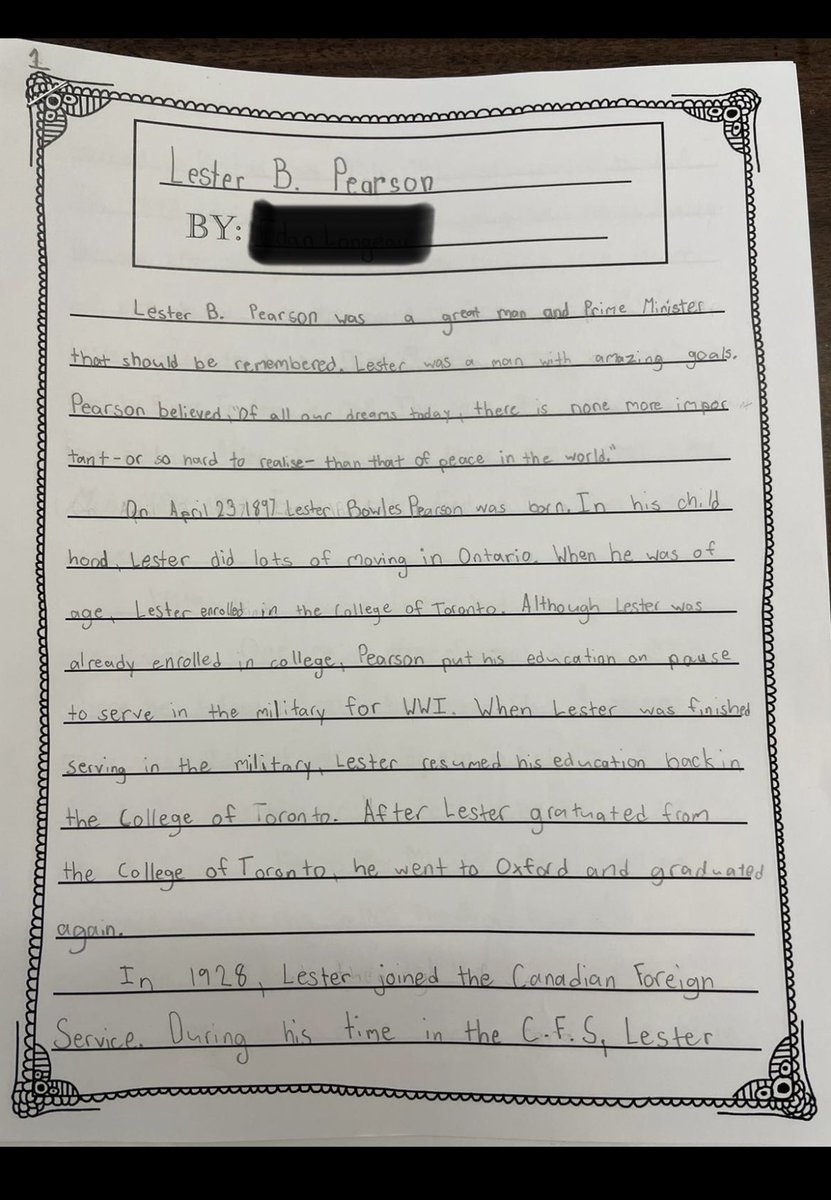 1
Lester B. Pearson
BY:
Lester B. Pearson was a great man and Prime Minister
that should be remembered. Lester was a man with amazing goals.
Pearson believed, "Of all our dreams today, there is none more impor-
tant-or so hard to realise- than that of peace in the world."
On April 23, 1897 Lester Bowles Pearson was born. In his child
hood, Lester did lots of moving in Ontario. When he was of
age, Lester enrolled in the College of Toronto. Although Lester was
already enrolled in college, Pearson put his education on pause
to serve in the military for WWI. When Lester was finished
serving in the military, Lester resumed his education back in
the College of Toronto. After Lester gratuated from
the College of Toronto, he went to Oxford and graduated
again.
In 1928, Lester joined the Canadian Foreign
Service. During his time in the C.F.S, Lester